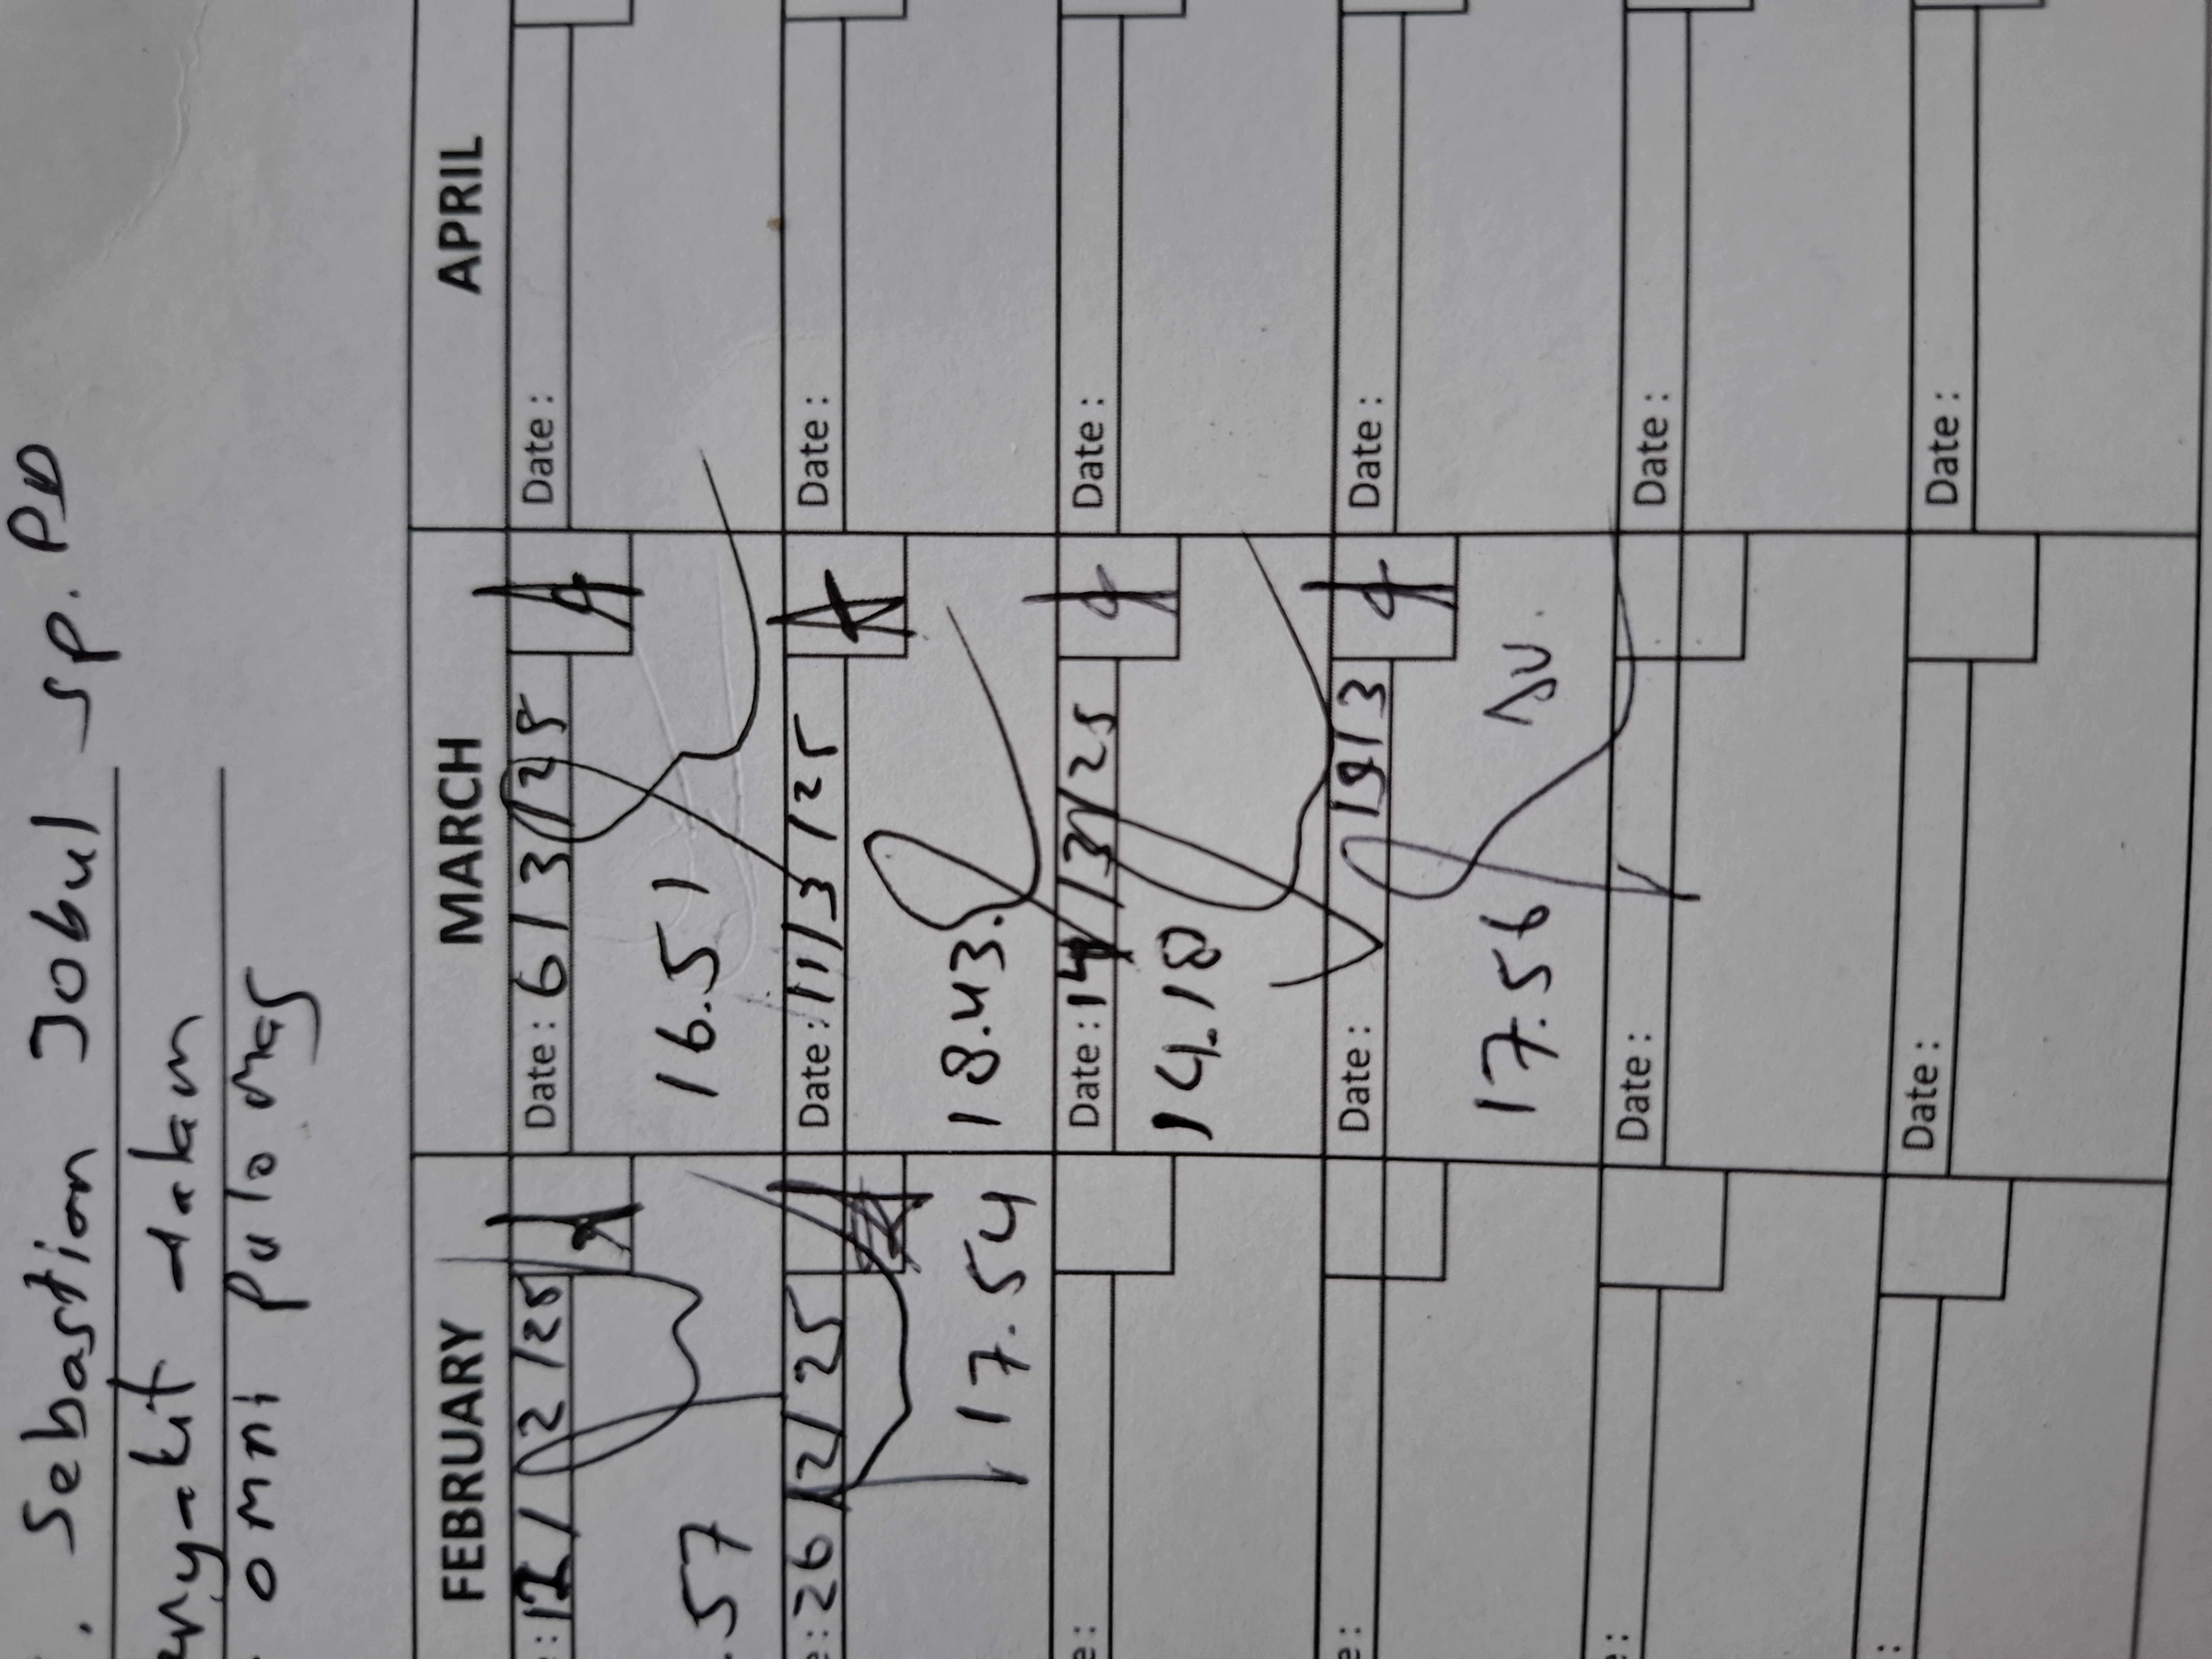 . Sebastian Jobul sp. PD
dalam
omni pulo mas
FEBRUARY MARCH APRIL
: 12/2/25 Date : 6/3/25 Date :
.57 16.51
: 26/2/25 Date : 11/3/25 Date :
17.54 18.43.
e: Date : 14/3/25 Date :
14.18
e: Date : 19/3 Date :
17.56
: Date : Date :
: Date : Date :